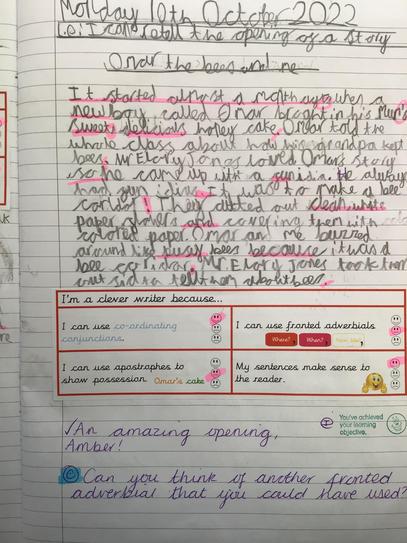 Monday 10th October 2022
L.O: I can retell the opening of a story
Omar the bees and me
It started almost a month ago when a
new boy called Omar brought in his Mum's
sweet, delicious honey cake. Omar told the
whole class about how his grandpa kept
bees. Mr Elory Jones loved Omar's story
so he came up with a He always
had fun It was to make a bee
coridor! They cutted out clean white
paper flowers and covering them with
colored paper. Omar an me buzzed
around like busy bees because it was a
bee coridor. Mr Elory Jones took them
out sid to tell them about bees.
I'm a clever writer because...
I can use co-ordinating
conjunctions.
I can use fronted adverbials
Where? When?
I can use apostrophes to
show possession. Omar's cake
My sentences make sense to
the reader.
✓An amazing opening,
Amber!
I
You've achieved
your learning
objective.
Can you think of another fronted
adverbial that you could have used?